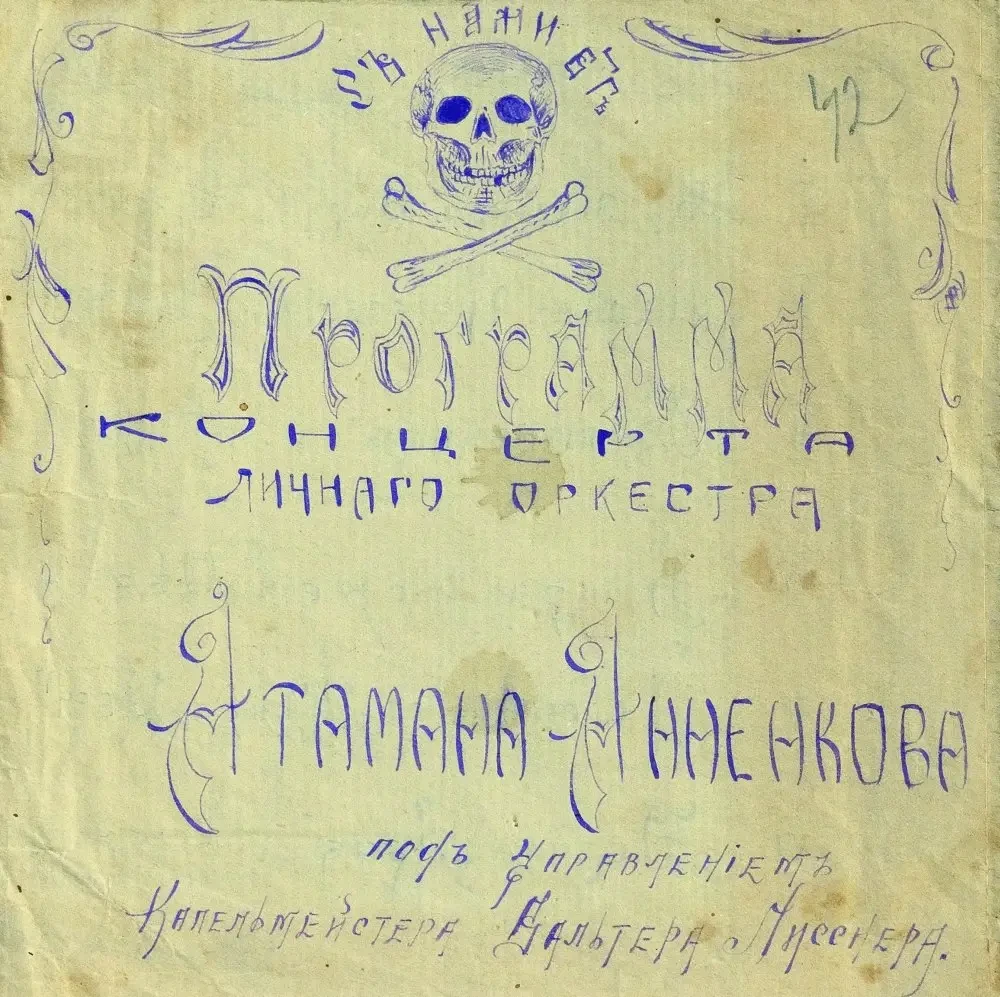 СЪ НАМИ БГЪ
42
Программа
КОНЦЕРТА
ЛИЧНАГО ОРКЕСТРА
АТАМАНА АННЕНКОВА
подъ управленіемъ
Капельмейстера Вальтера Лисснера.